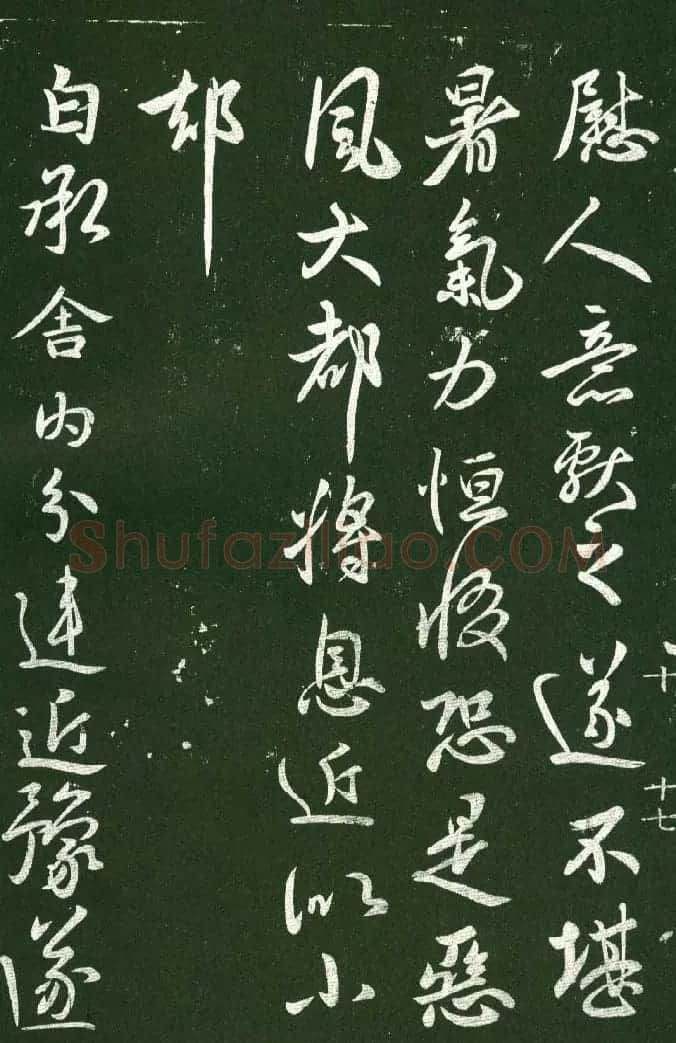 慰人意之遂不堪
暑氣力恒惙恐是惡
風大都將息近似小
却
自承舍內分違近豫遂
十七
Shufaziliao.COM